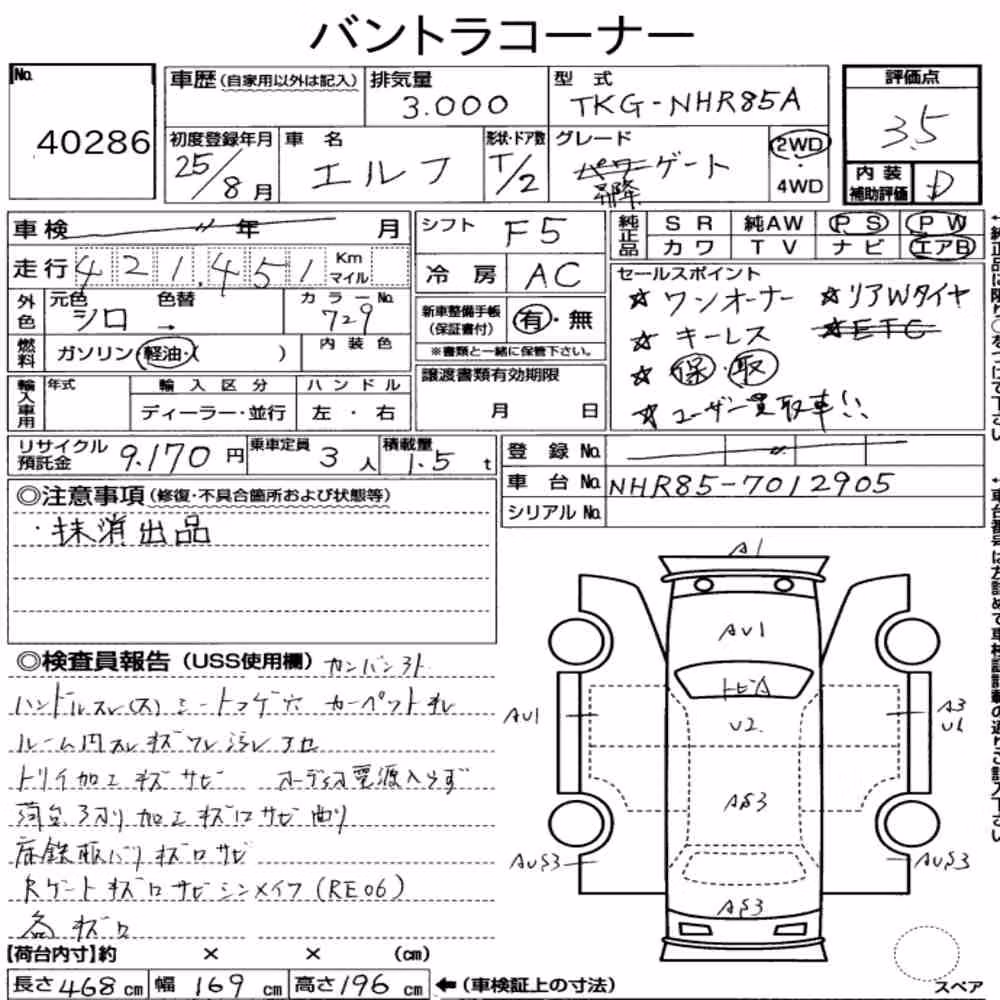 バントラコーナー
No. 40286
車歴 (自家用以外は記入)
排気量 3.000
型式 TKG-NHR85A
評価点 3.5
初度登録年月 25/8月
車名 エルフ
形状・ドア数 T/2
グレード パワーゲート
昇降
2WD・4WD
内装補助評価 D
車検 〃 年 月
走行 421,451 Km マイル
シフト F5
冷房 AC
純正品 SR 純AW PS PW
カワ TV ナビ エアB
外色 元色 シロ 色替 → カラーNo. 729
燃料 ガソリン・軽油・( ) 内装色
新車整備手帳 (保証書付) 有・無
※書類と一緒に保管下さい。
セールスポイント
☆ ワンオーナー ☆リアWタイヤ
☆ キーレス ☆ETC
☆ 保・取
☆ ユーザー買取車!!
輸入車用 年式 輸入区分 ハンドル
ディーラー・並行 左・右
譲渡書類有効期限
月 日
リサイクル預託金 9.170円
乗車定員 3人
積載量 1.5t
登録No. 〃
車台No. NHR85-7012905
シリアルNo.
◎注意事項 (修復・不具合箇所および状態等)
・抹消出品
◎検査員報告 (USS使用欄) カンバン外
ハンドルスレ(大) シートコゲ穴 カーペットキレ
ルーム内スレキズワレ汚レ
トリイ加工キズサビ オーディオ電源入らず
荷台 加工キズロサビ曲り
床鉄板バリキズロサビ
Rゲートキズロサビシンメイワ(RE06)
各キズロ
【荷台内寸】約 × × (cm)
長さ468cm 幅169cm 高さ196cm ←(車検証上の寸法)
A1
AU1
トビA
AU1
U2
A3
U1
AS3
AUS3
AUS3
AS3
スペア
↑純正品に限り○をつけて下さい
↑車台番号は左詰めで車検証記載の通りご記入下さい